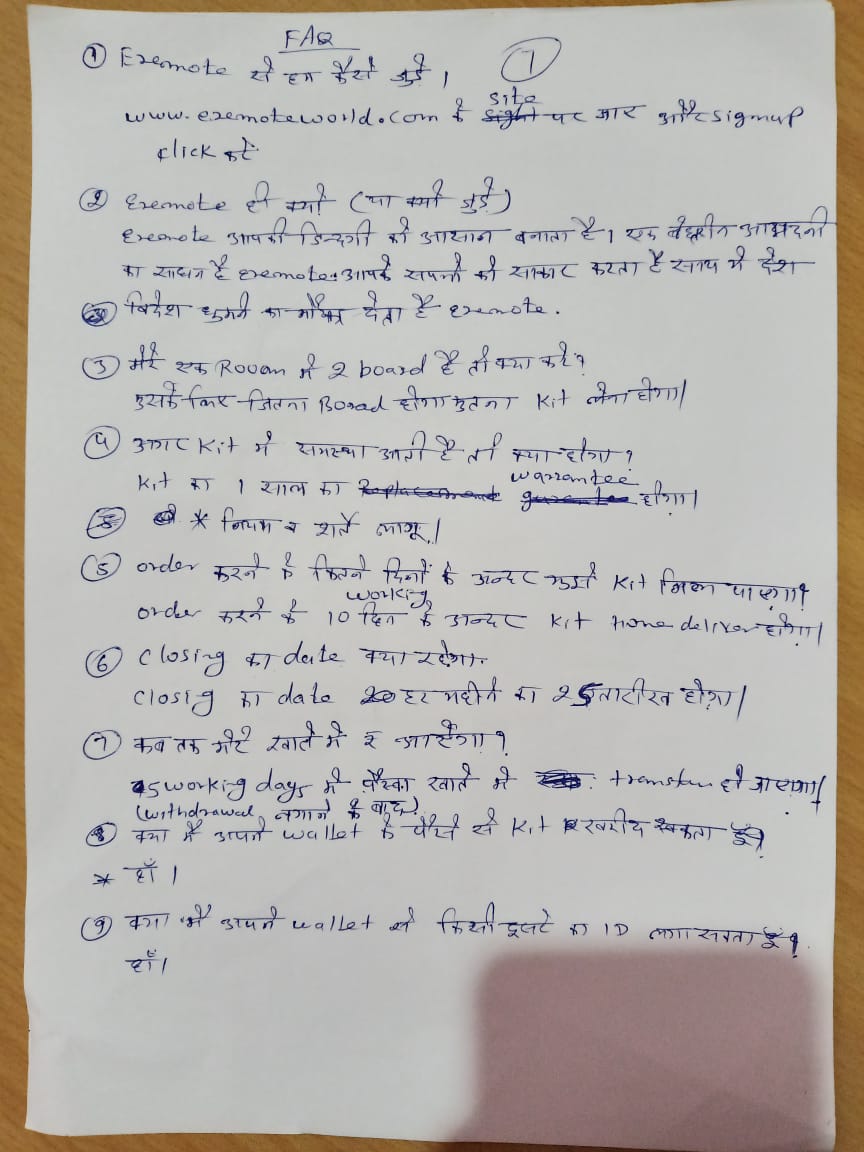 FAQ
1
① Exemote से हम कैसे जुड़े ।
www.exemoteworld.com के site पर जाए और signup
click करें
② Exemote ही क्यों (या क्यों जुड़े)
Exemote आपकी जिन्दगी को आसान बनाता है। एक बेहतरीन आमदनी
का साधन है exemote। आपके सपनों को साकार करता है साथ में देश
विदेश घुमने का मौका देता है exemote.
③ मेरे एक Room में 2 board है तो क्या करे?
उसके लिए जितना Board होगा उतना Kit लेना होगा।
④ अगर Kit में समस्या आती है तो क्या होगा?
Kit का 1 साल का warrantee होगा।
* नियम व शर्तें लागू।
⑤ order करने के कितने दिनों के अन्दर मुझे Kit मिल पाएगा?
order करने के 10 working दिन के अन्दर Kit Home deliver होगा।
⑥ closing का date क्या रहेगा.
closing का date हर महीने का 25 तारीख होगा।
⑦ कब तक मेरे खाते में ₹ आएगा?
5 working days में पैसा खाते में transfer हो जाएगा।
(withdrawal लगाने के बाद)
⑧ क्या मैं अपने wallet के पैसे से Kit खरीद सकता हूँ?
* हाँ।
⑨ क्या मैं अपने wallet से किसी दूसरे का ID लगा सकता हूँ?
हाँ।